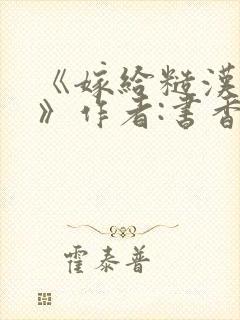 《嫁给糙汉
》作者:书香
霍泰普